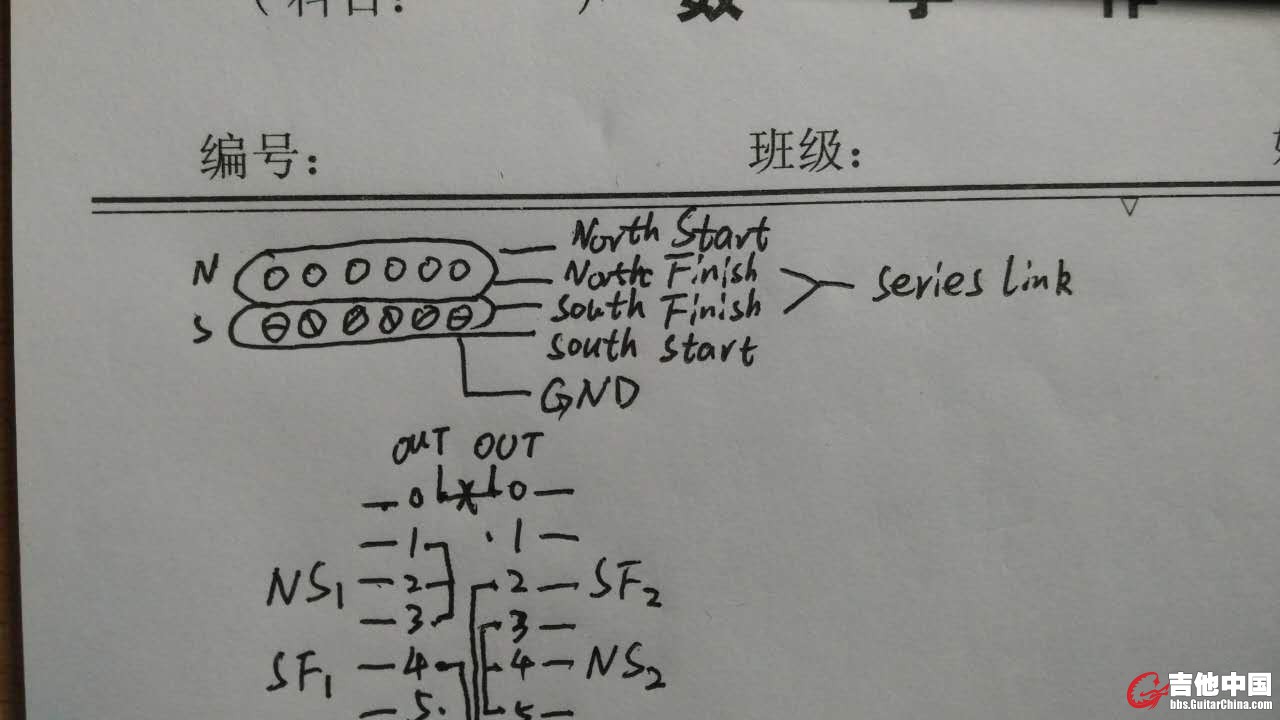 (科目: ) 数 学 作
编号: 班级:
N North Start
North Finish
South Finish
series link
S South Start
GND
OUT OUT
0 X 0
1 1
NS1 2 2 SF2
3 3
SF1 4 4 NS2
5 5
吉他中国
bbs.GuitarChina.com